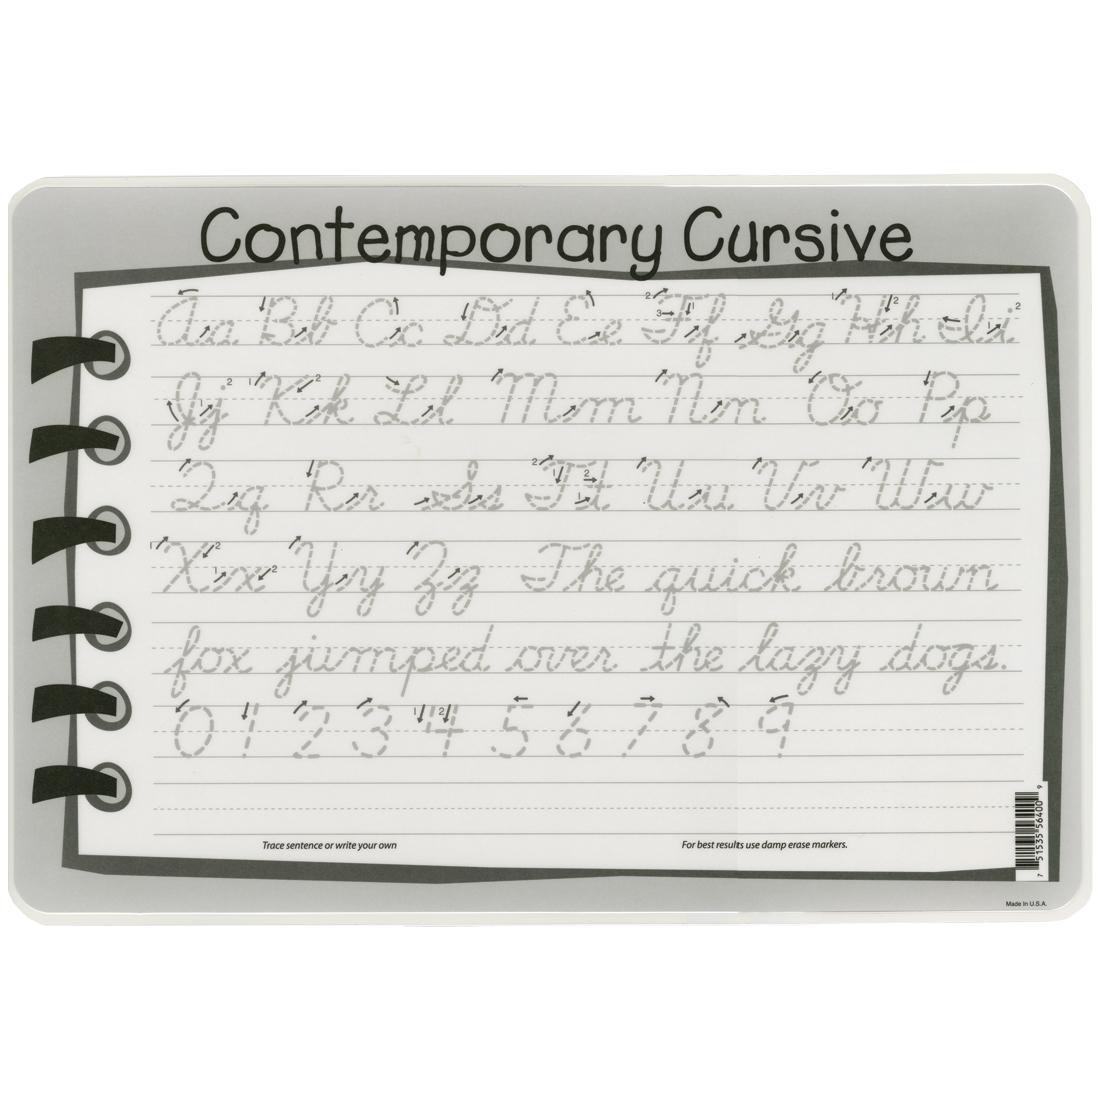 Contemporary Cursive
Aa Bb Cc Dd Ee Ff Gg Hh Ii
Jj Kk Ll Mm Nn Oo Pp
Qq Rr Ss Tt Uu Vv Ww
Xx Yy Zz The quick brown
fox jumped over the lazy dogs.
0 1 2 3 4 5 6 7 8 9
Trace sentence or write your own
For best results use damp erase markers.
7 51535 56400 9
Made In U.S.A.